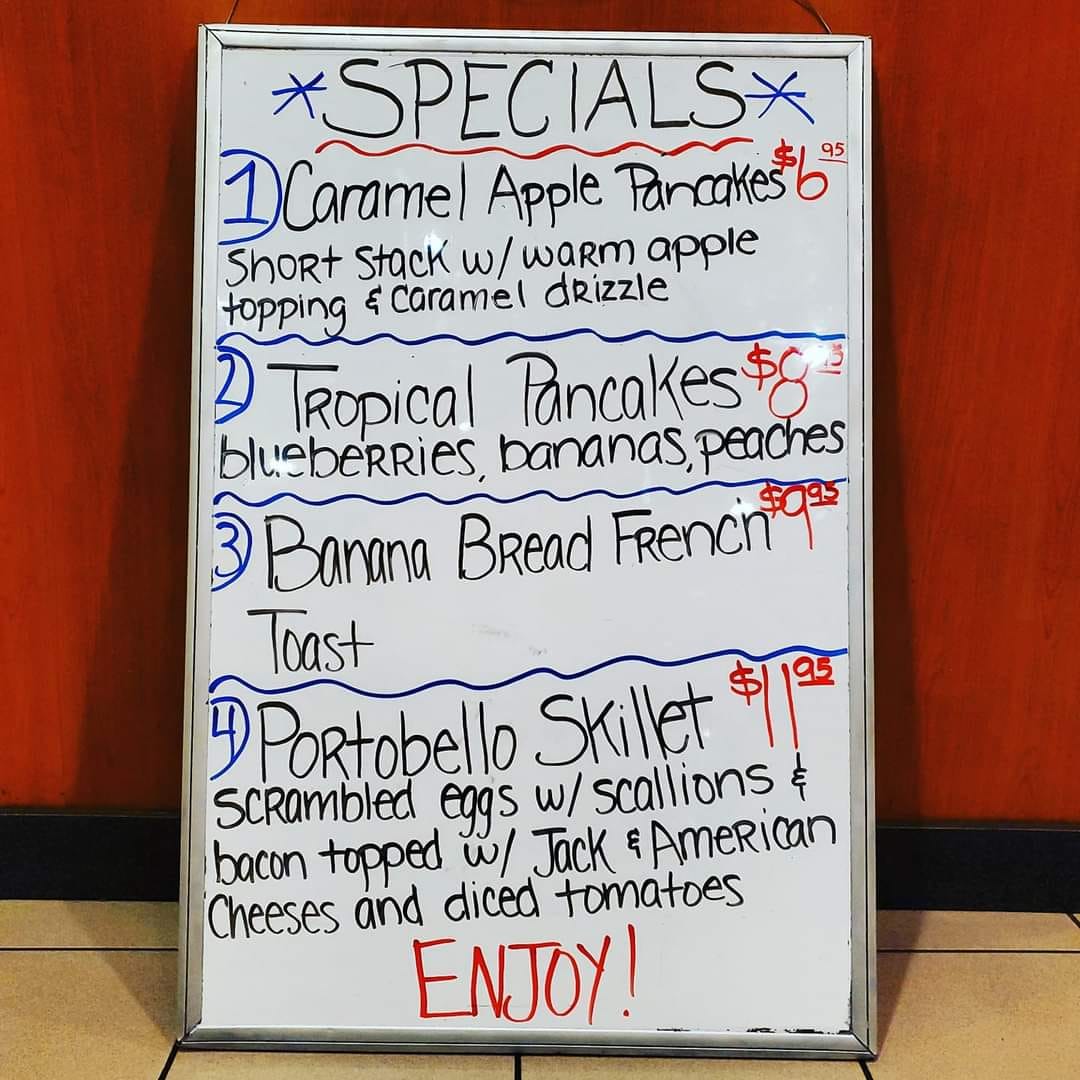 *SPECIALS*
1 Caramel Apple Pancakes $6 95
Short Stack w/ warm apple
topping & Caramel drizzle
2 Tropical Pancakes $8 95
blueberries, bananas, peaches
3 Banana Bread French $9 95
Toast
4 Portobello Skillet $11 95
Scrambled eggs w/ scallions &
bacon topped w/ Jack & American
Cheeses and diced tomatoes
ENJOY!